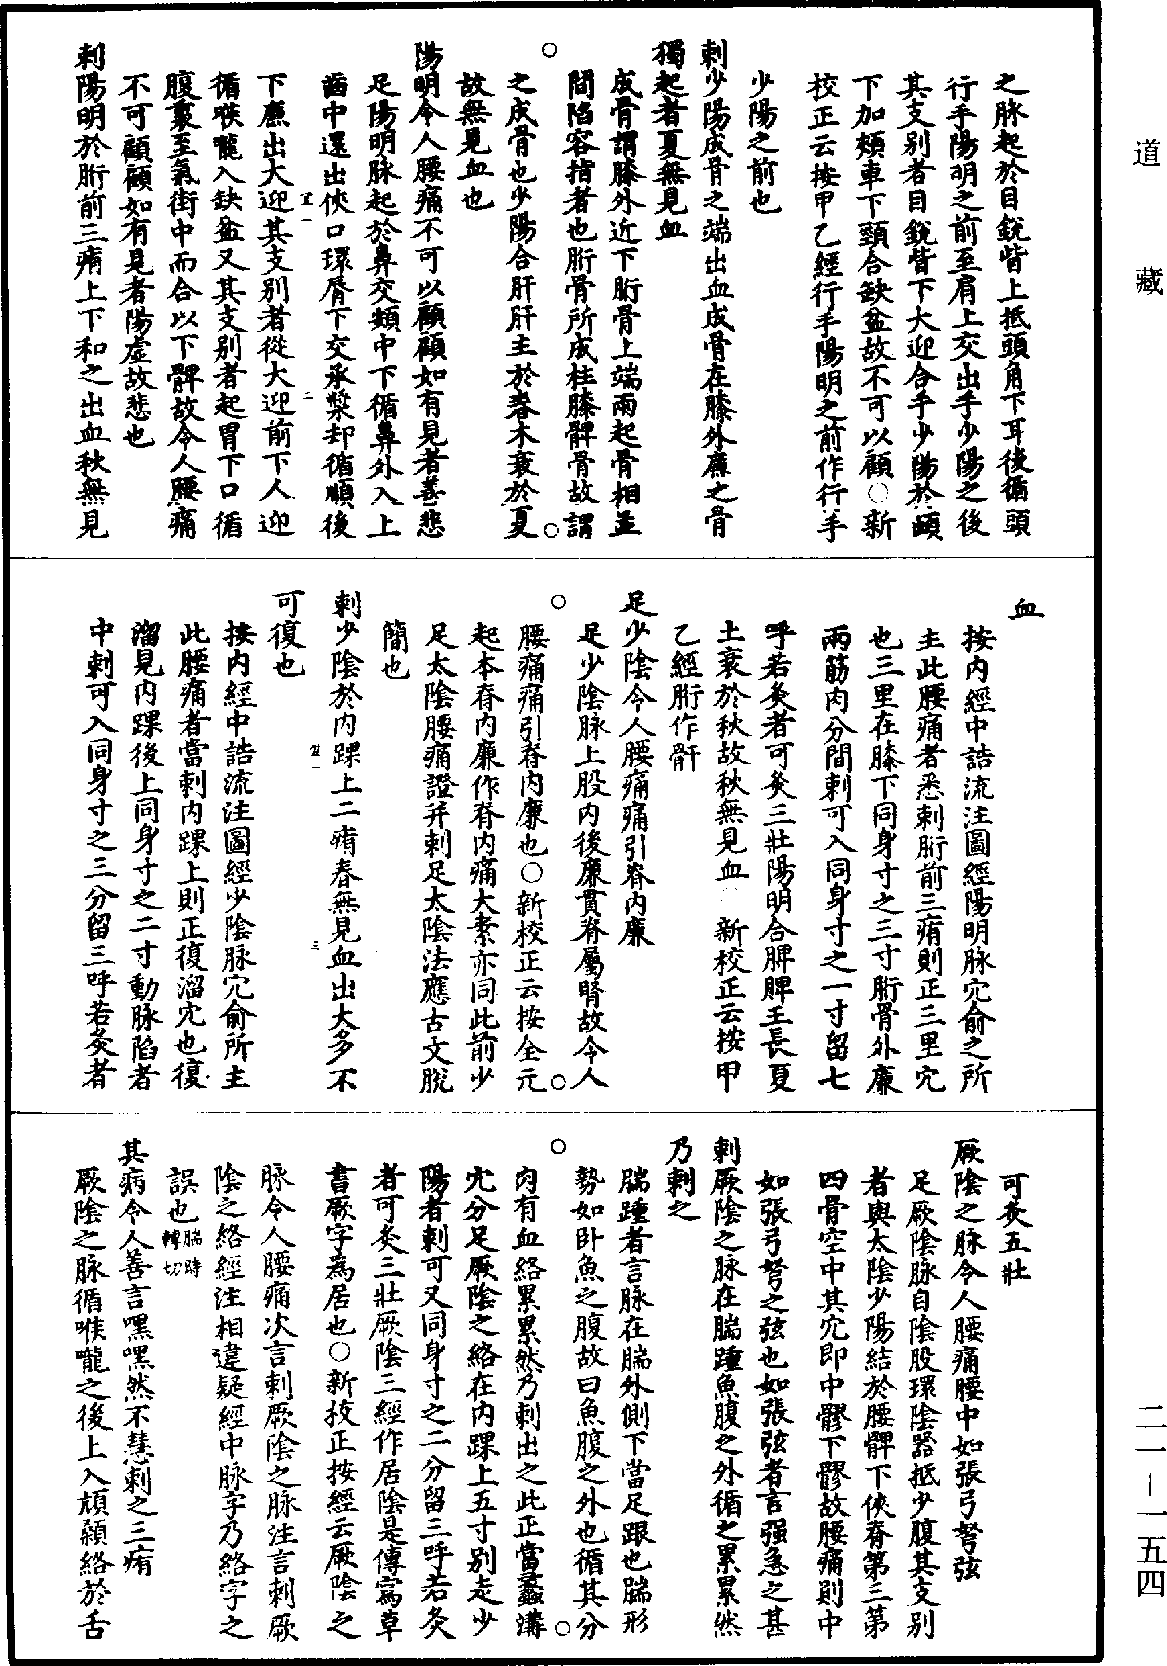 道藏
之脉起於目銳眥上抵頭角下耳後循頸
行手陽明之前至肩上交出手少陽之後
其支別者目銳眥下大迎合手少陽於䪼
下加頰車下頸合缺盆故不可以顧〇新
校正云按甲乙經行手陽明之前作行手
少陽之前也
刺少陽成骨之端出血成骨在膝外廉之骨
獨起者夏無見血
成骨謂膝外近下䯒骨上端兩起骨相並
間陷容指者也䯒骨所成柱膝髀骨故謂
之成骨也少陽合肝肝主於春木衰於夏
故無見血也
陽明令人腰痛不可以顧顧如有見者善悲
足陽明脉起於鼻交頞中下循鼻外入上
齒中還出俠口環脣下交承漿却循頤後
下廉出大迎其支別者從大迎前下人迎
循喉嚨入缺盆又其支別者起胃下口循
腹裏至氣街中而合以下髀故令人腰痛
不可顧顧如有見者陽虛故悲也
刺陽明於䯒前三痏上下和之出血秋無見
血
按內經中誥流注圖經陽明脉穴俞之所
主此腰痛者悉刺䯒前三痏則正三里穴
也三里在膝下同身寸之三寸䯒骨外廉
兩筋肉分間刺可入同身寸之一寸留七
呼若灸者可灸三壯陽明合脾脾王長夏
土衰於秋故秋無見血 新校正云按甲
乙經䯒作骭
足少陰令人腰痛痛引脊內廉
足少陰脉上股內後廉貫脊屬腎故令人
腰痛痛引脊內廉也〇新校正云按全元
起本脊內廉作脊內痛大素亦同此前少
足太陰腰痛證并刺足太陰法應古文脫
簡也
刺少陰於內踝上二痏春無見血出大多不
可復也
按內經中誥流注圖經少陰脉穴俞所主
此腰痛者當刺內踝上則正復溜穴也復
溜見內踝後上同身寸之二寸動脉陷者
中刺可入同身寸之三分留三呼若灸者
可灸五壯
厥陰之脉令人腰痛腰中如張弓弩弦
足厥陰脉自陰股環陰器抵少腹其支別
者與太陰少陽結於腰髁下俠脊第三第
四骨空中其穴即中髎下髎故腰痛則中
如張弓弩之弦也如張弦者言强急之甚
刺厥陰之脉在腨踵魚腹之外循之累累然
乃刺之
腨踵者言脉在腨外側下當足跟也腨形
勢如卧魚之腹故曰魚腹之外也循其分
肉有血絡累累然乃刺出之此正當蠡溝
穴分足厥陰之絡在內踝上五寸別走少
陽者刺可又同身寸之二分留三呼若灸
者可灸三壯厥陰三經作居陰是傳寫草
書厥字為居也〇新挍正按經云厥陰之
脉令人腰痛次言刺厥陰之脉注言刺厥
陰之絡經注相違疑經中脉字乃絡字之
誤也腨時
轉切
其病令人善言嘿嘿然不慧刺之三痏
厥陰之脉循喉嚨之後上入頏顙絡於舌
二一-一五四